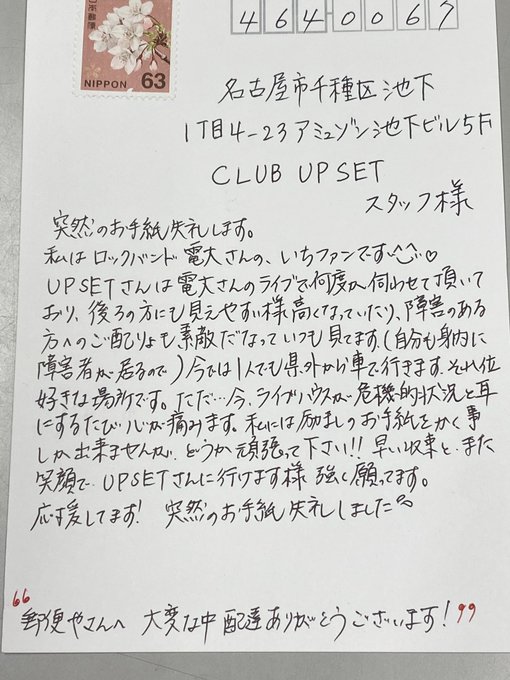 日本郵便
NIPPON 63
4640067
名古屋市千種区池下
1丁目4-23アミュゾン池下ビル5F
CLUB UPSET
スタッフ様
突然のお手紙失礼します。
私はロックバンド電大さんの、いちファンです^^♡
UPSETさんは電大さんのライブで何度か伺わせて頂いて
おり、後ろの方にも見えやすい様高くなっていたり、障害のある
方へのご配りょも素敵だなっていつも見てます。(自分も身内に
障害者が居るので)今では1人でも県外から車で行きます。それ位
好きな場所です。ただ…今、ライブハウスが危機的状況と耳
にするたび心が痛みます。私には励ましのお手紙をかく事
しか出来ませんが、どうか頑張って下さい!!早い収束と、また
笑顔で、UPSETさんに行けます様 強く願ってます。
応援してます! 突然のお手紙失礼しました
“郵便やさんへ 大変な中 配達ありがとうございます!”